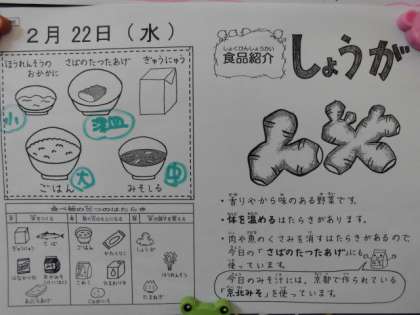 2月22日（水）
ほうれんそうの
おかかに
さばのたつたあげ
ぎゅうにゅう
小
深皿
ごはん
大
みそしる
中
ぎゅうにゅう
さば
ごはん
しょうが
ほうれんそう
たまねぎ
しょくひんしょうかい
食品紹介
しょうが
・香りやから味のある野菜です。
・体を温めるはたらきがあります。
・肉や魚のくさみを消すはたらきがあるので、
今日の「さばのたつたあげ」にも
使っています。
今日のみそ汁には、京都で作られている
「京北みそ」を使っています。